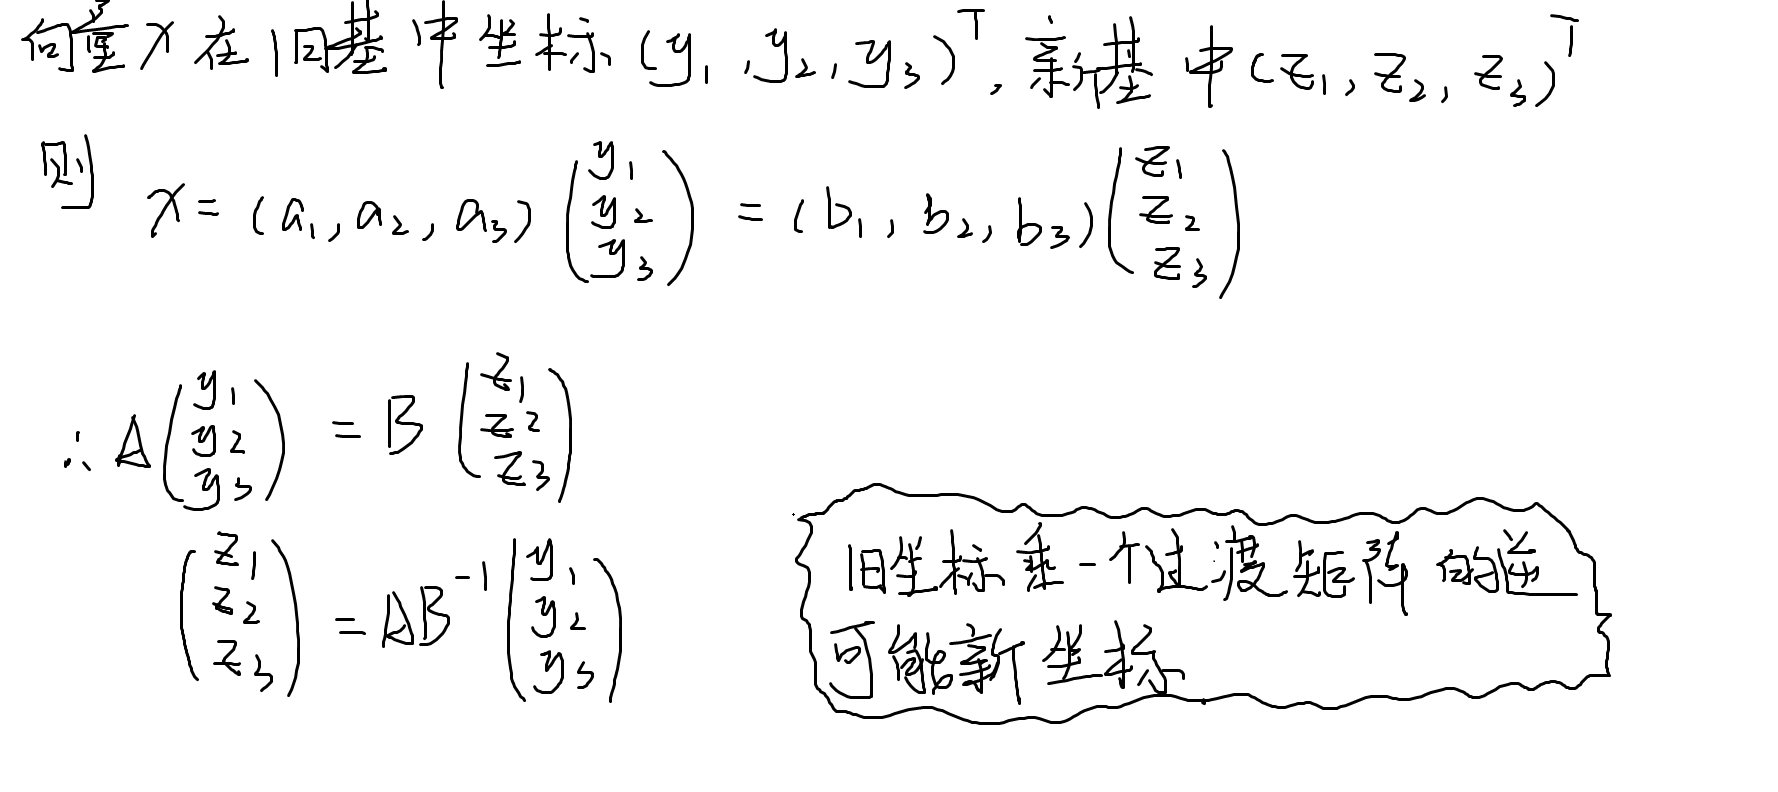 向量x在旧基中坐标(y₁,y₂,y₃)ᵀ,新基中(z₁,z₂,z₃)ᵀ
则 x=(a₁,a₂,a₃)(y₁ y₂ y₃)=(b₁,b₂,b₃)(z₁ z₂ z₃)
∴A(y₁ y₂ y₃)=B(z₁ z₂ z₃)
(z₁ z₂ z₃)=AB⁻¹(y₁ y₂ y₃)
旧坐标乘一个过渡矩阵的逆
可能新坐标